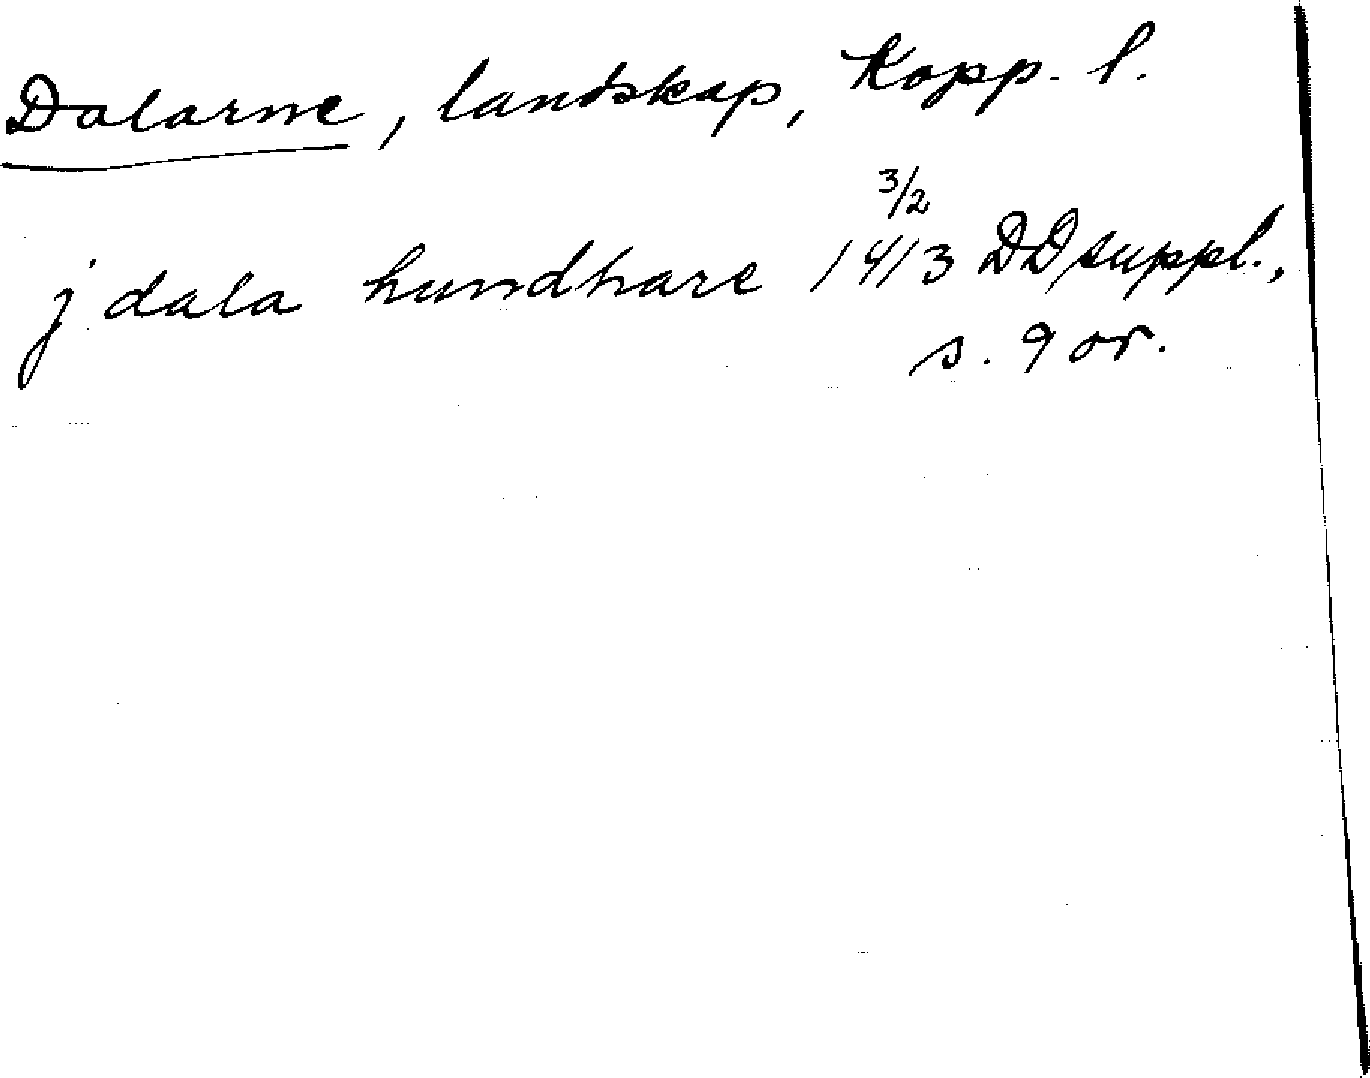 Dalarne, landskap, Kopp. l.
3/2
j dala hundhare 1413 DD suppl.,
s. 9 or.